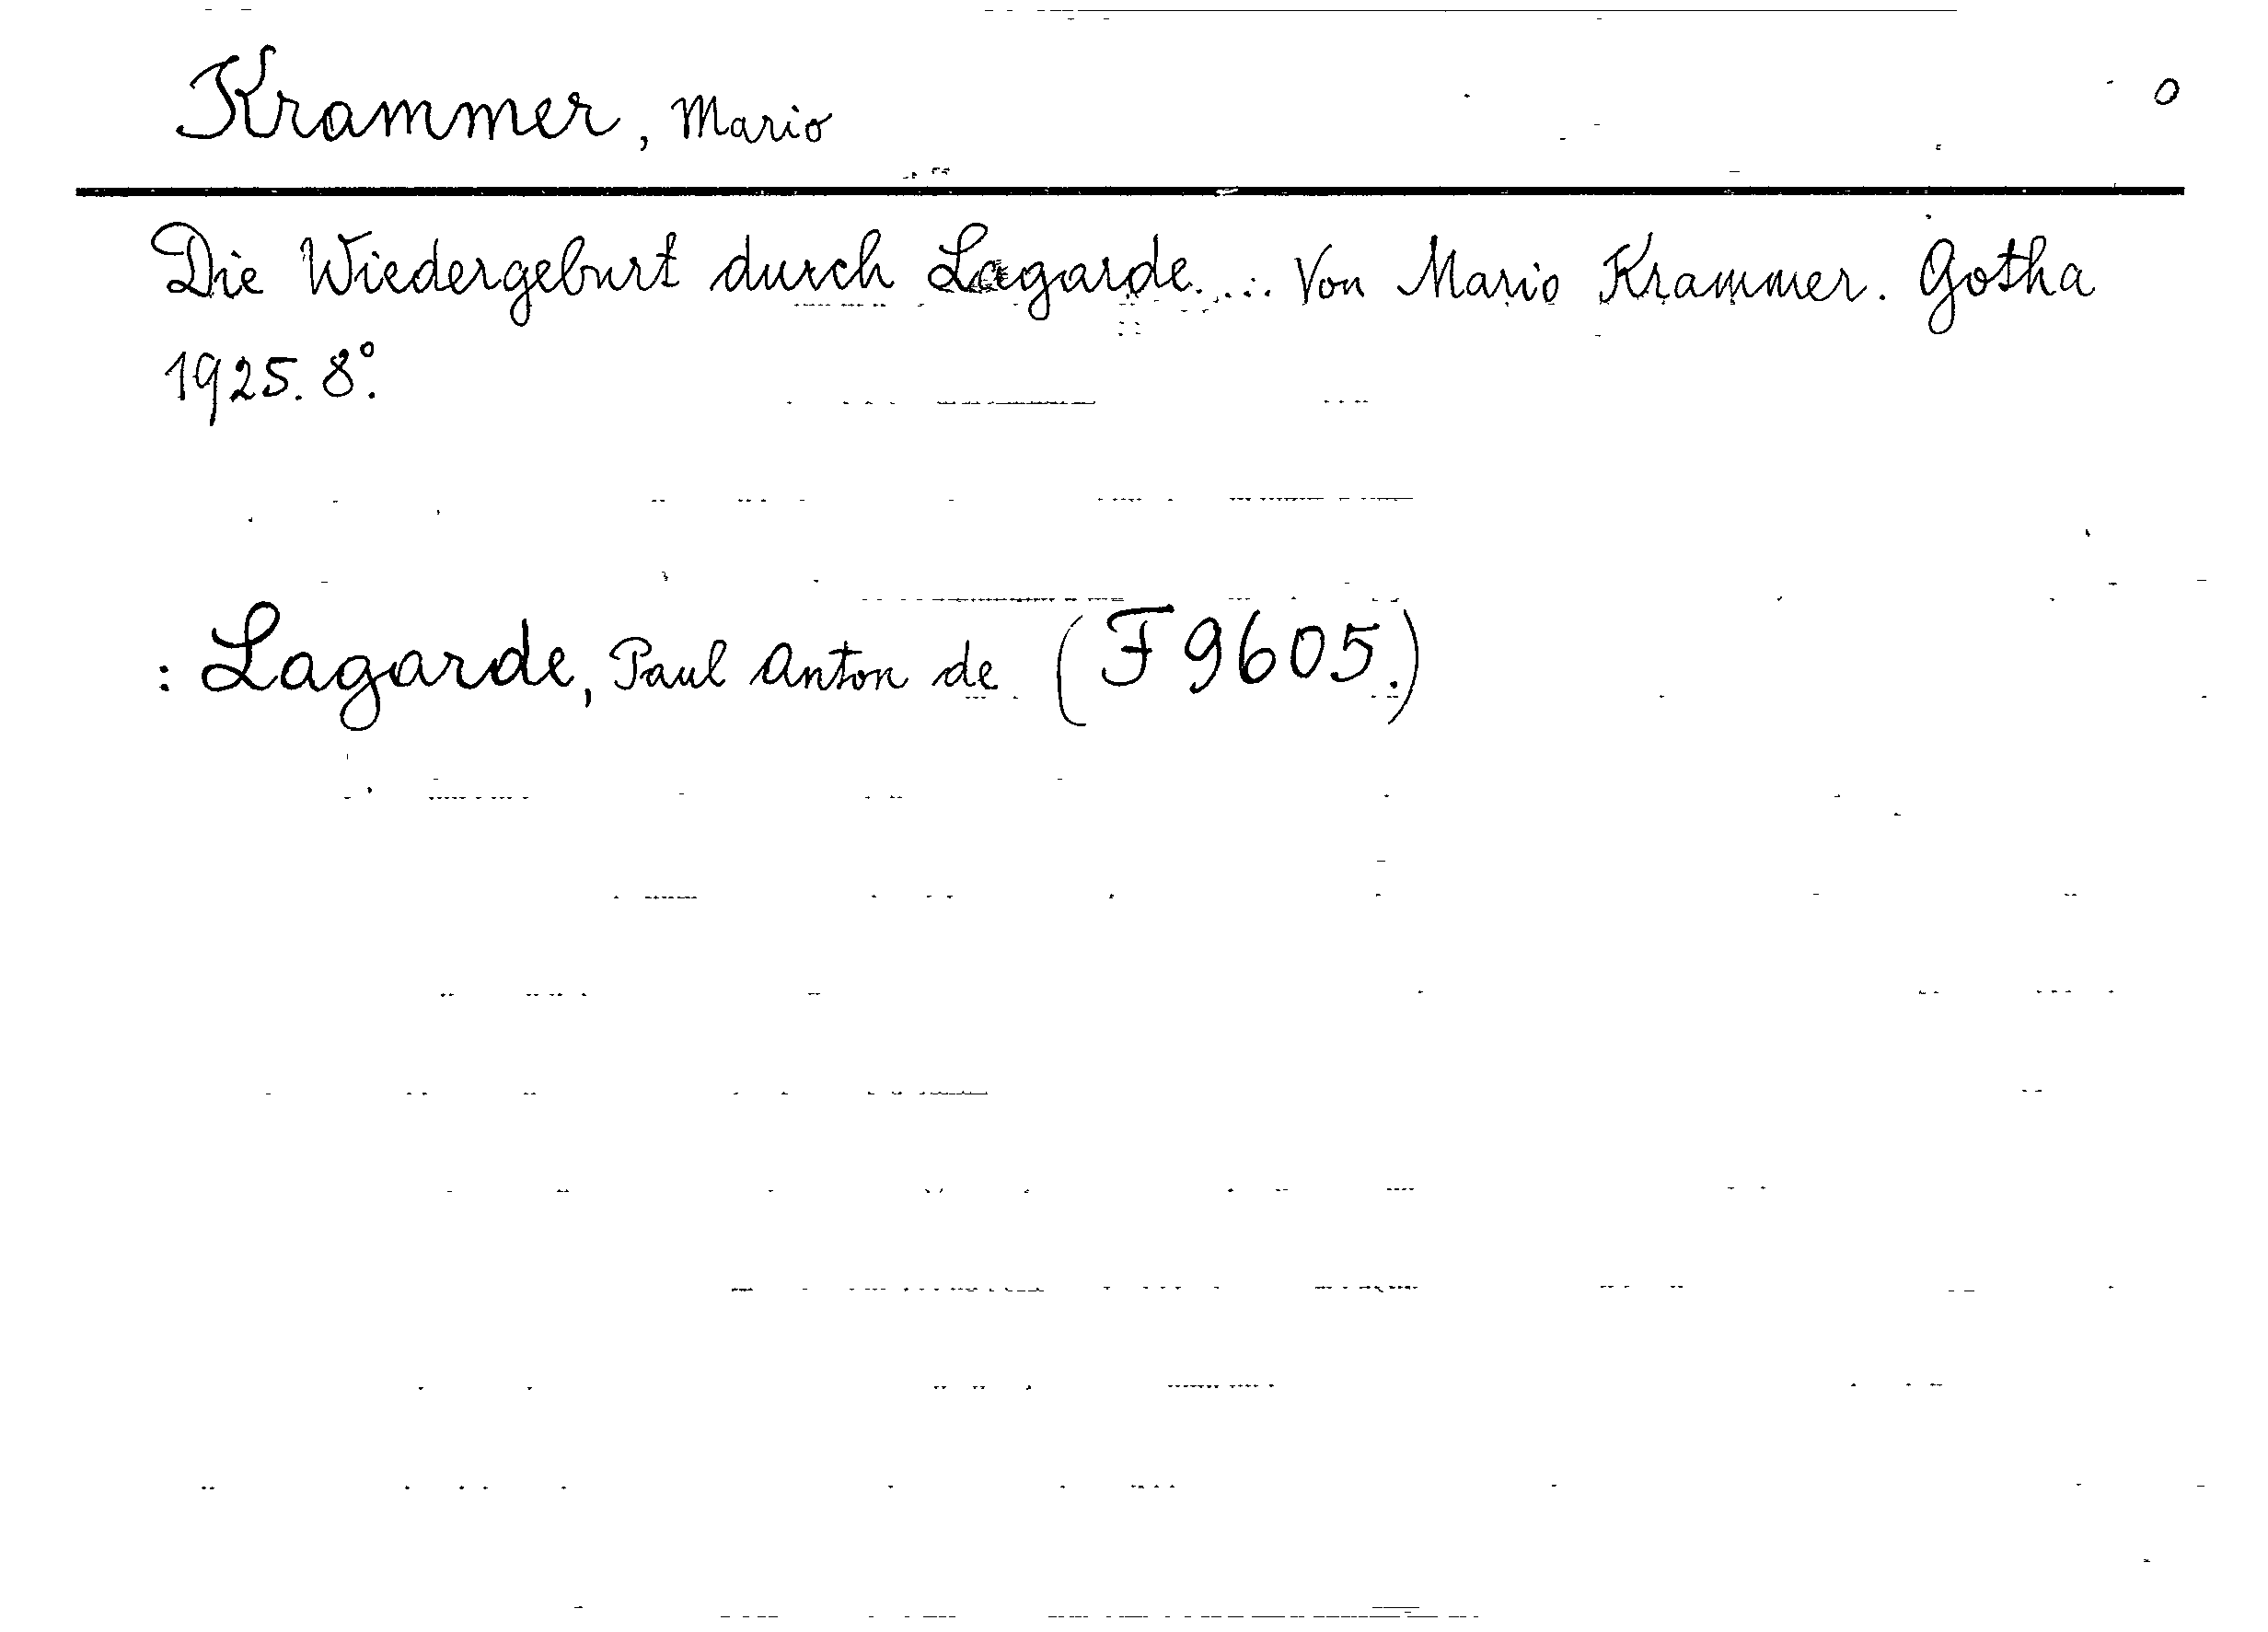 Krammer, Mario 0
Die Wiedergeburt durch Lagarde.... Von Mario Krammer. Gotha
1925. 8°.
: Lagarde, Paul Anton de (F 9605.)